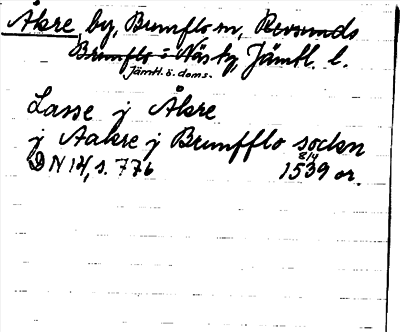 Åkre, by, Brunflo sn, Revsunds
Brunflo o Näs tg, Jämtl. l.
Jämtl. ö. doms.
Lasse j Åkre
j Aakre j Brunfflo sockn
DN 12, s. 776 8/4 1539 or.